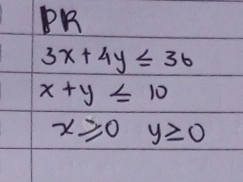 PR
3x + 4y ≤ 36
x + y ≤ 10
x ≥ 0 y ≥ 0